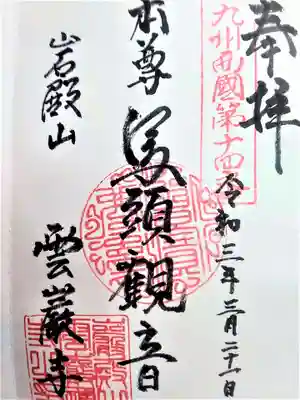 奉拝
九州西國第十四
令和三年三月二十一日
本尊 馬頭觀音
岩殿山
雲巖寺